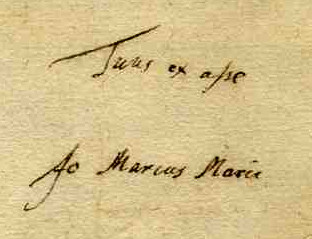 Tuus ex asse
Jo Marcus Marci